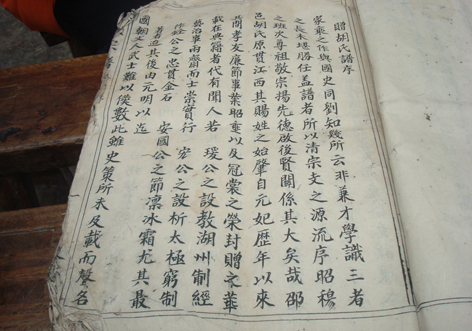 贈胡氏譜序
家乘之作與國史同劉知幾所云非兼才學識三者
之長未堪勝任蓋譜者所以清宗支之源流序昭穆
之班次尊祖敬宗揚先德啟後賢關係其大矣哉邵
邑胡原貫江西其賜姓之始肇自元妃歷年以來
其間孝友廉節事業昭垂以及冠裳之榮封贈之華
載在典籍者代有聞人若 瑗公之設教湖州制經
義治事兩齋而士崇實行 宏公之設析太極窮制
公之忠貫金石 安國公之節凜冰霜尤其最
著者迨其後由元明以迄
國朝文人武士難以僂數此雖史策所未及載而聲名